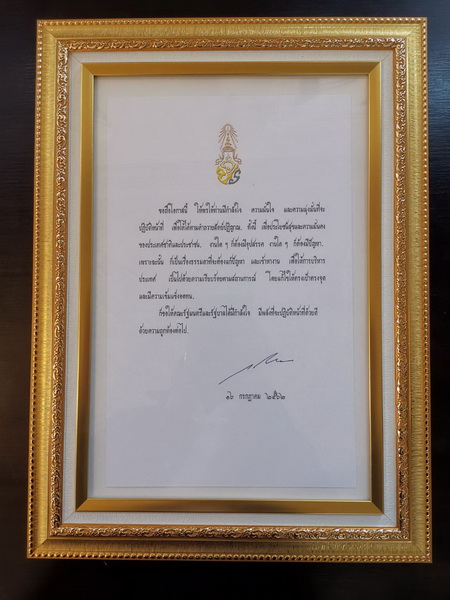 ขอถือโอกาสนี้ ให้พรให้ท่านมีกำลังใจ ความมั่นใจ และความมุ่งมั่นที่จะ
ปฏิบัติหน้าที่ เพื่อให้ได้ตามคำถวายสัตย์ปฏิญาณ ทั้งนี้ เพื่อประโยชน์สุขและความมั่นคง
ของประเทศชาติและประชาชน. งานใด ๆ ก็ต้องมีอุปสรรค งานใด ๆ ก็ต้องมีปัญหา.
เพราะฉะนั้น ก็เป็นเรื่องธรรมดาที่จะต้องแก้ปัญหา และเข้าหางาน เพื่อให้การบริหาร
ประเทศ เป็นไปด้วยความเรียบร้อยตามสถานการณ์ โดยแก้ไขให้ตรงเป้าตรงจุด
และมีความเข้มแข็งอดทน.
ก็ขอให้คณะรัฐมนตรีและรัฐบาลได้มีกำลังใจ มีพลังที่จะปฏิบัติหน้าที่ด้วยดี
ด้วยความถูกต้องต่อไป.
๑๖ กรกฎาคม ๒๕๖๒